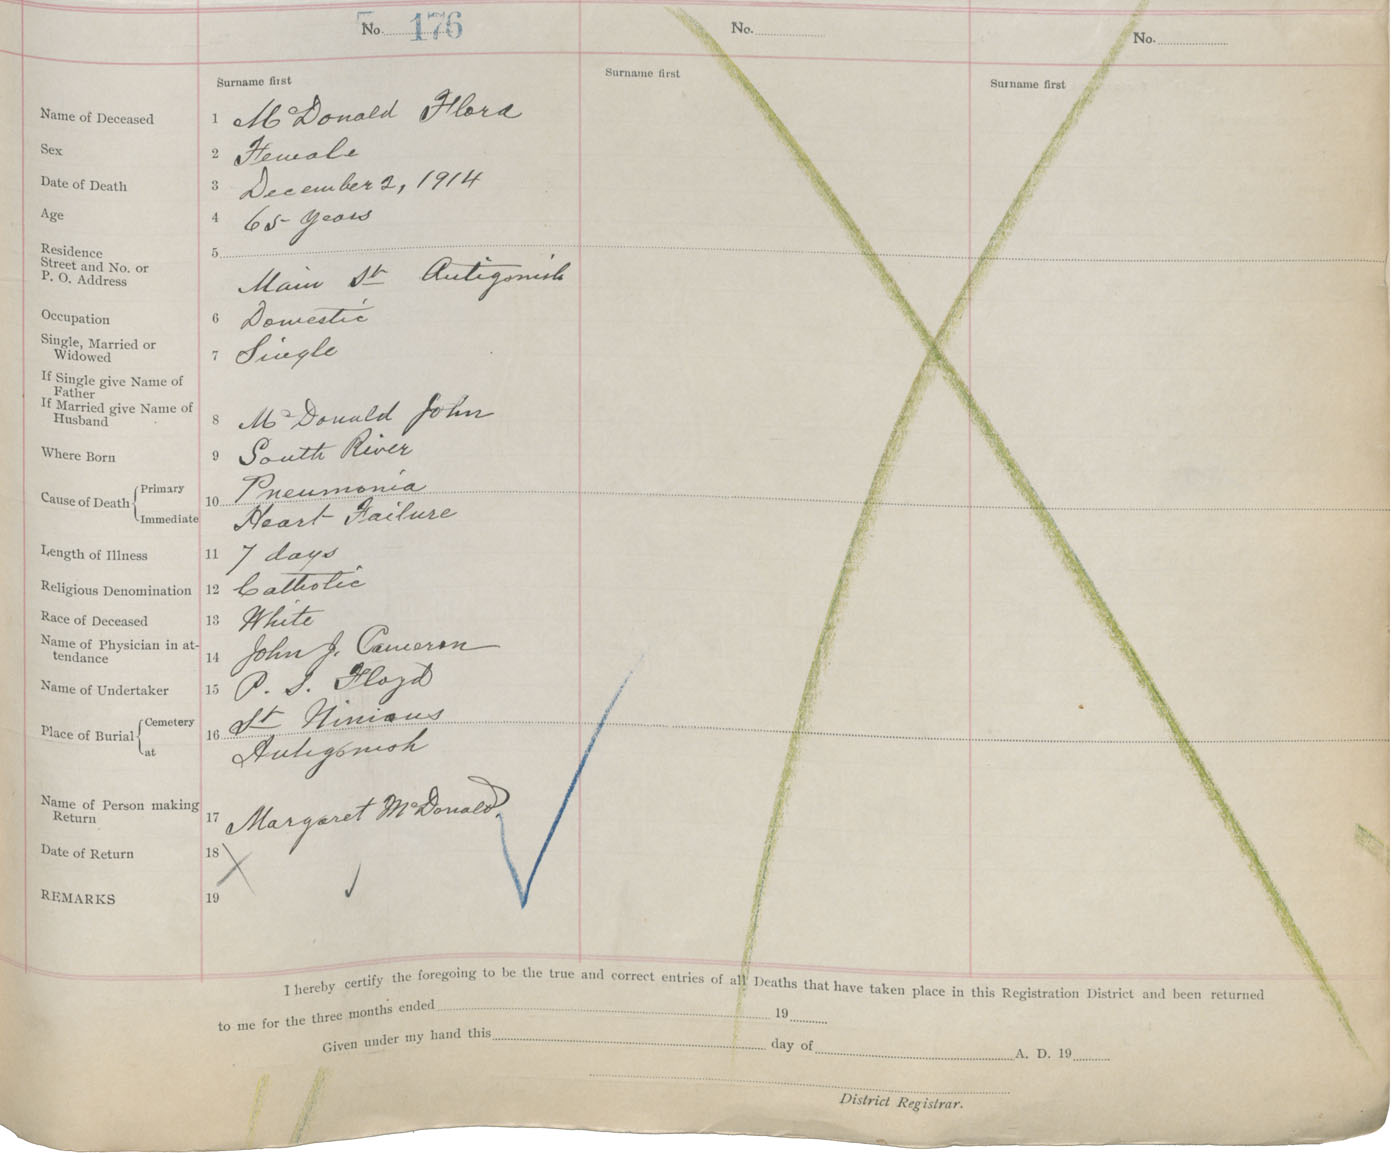 No. 176
No.
No.
Surname first
Surname first
Surname first
Name of Deceased 1 McDonald Flora
Sex 2 Female
Date of Death 3 December 2, 1914
Age 4 65 years
Residence
Street and No. or
P. O. Address 5 Main St Antigonish
Occupation 6 Domestic
Single, Married or
Widowed 7 Single
If Single give Name of
Father
If Married give Name of
Husband 8 McDonald John
Where Born 9 South River
Cause of Death Primary 10 Pneumonia
Immediate Heart Failure
Length of Illness 11 7 days
Religious Denomination 12 Catholic
Race of Deceased 13 White
Name of Physician in at-
tendance 14 John J. Cameron
Name of Undertaker 15 P. S. Floyd
Place of Burial Cemetery 16 St Ninians
at Antigonish
Name of Person making
Return 17 Margaret McDonald.
Date of Return 18
REMARKS 19
I hereby certify the foregoing to be the true and correct entries of all Deaths that have taken place in this Registration District and been returned
to me for the three months ended 19
Given under my hand this day of A. D. 19
District Registrar.